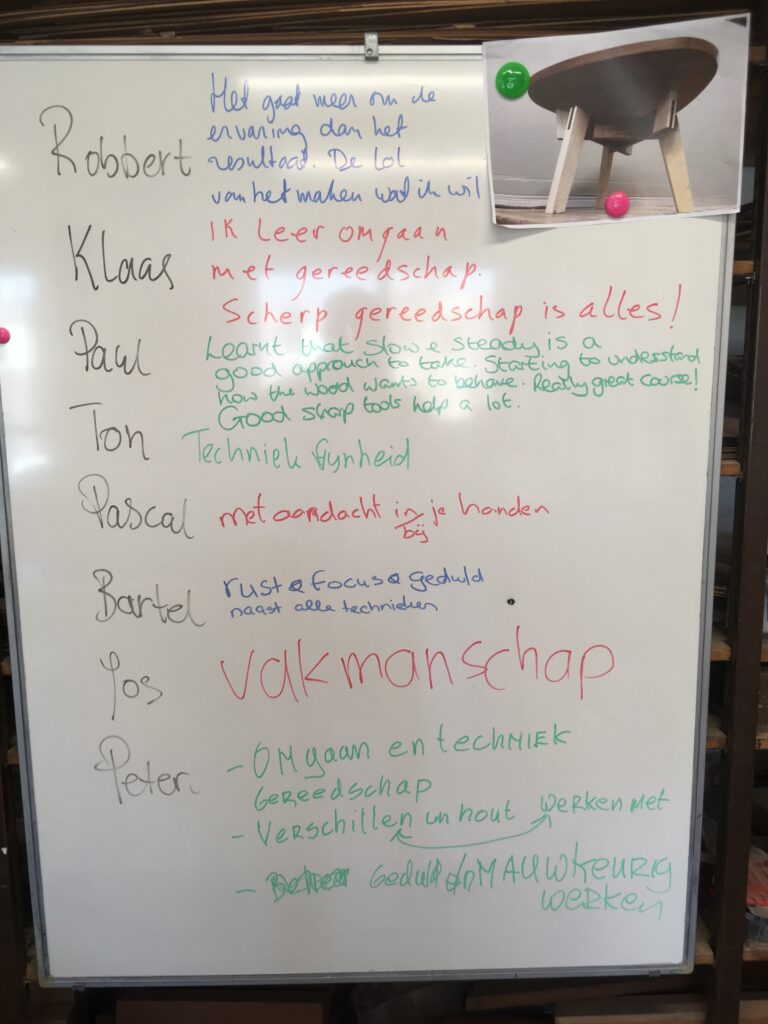 Robbert
Het gaat meer om de
ervaring dan het
resultaat. De lol
van het maken wat ik wil
Klaas
Ik leer omgaan
met gereedschap.
Scherp gereedschap is alles!
Paul
Learnt that slow & steady is a
good approach to take. Starting to understand
how the wood wants to behave. Really great course!
Good sharp tools help a lot.
Ton
Techniek fijnheid
Pascal
met aandacht in je handen
bij
Bartel
rust & focus & geduld
naast alle technieken
Jos
vakmanschap
Peter.
- OMgaan en techNIEK
GEREEdSCHAP
- VERSCHILLEN in hout WERKEN MET
- Geduld NAUWKEURIG
WERKEN